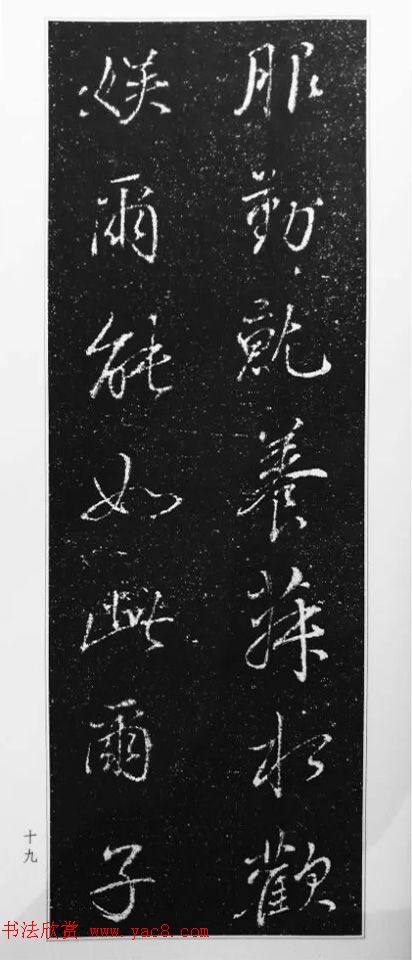 服勤就養菽水歡
娛爾能如此爾子
十九
书法欣赏 www.yac8.com